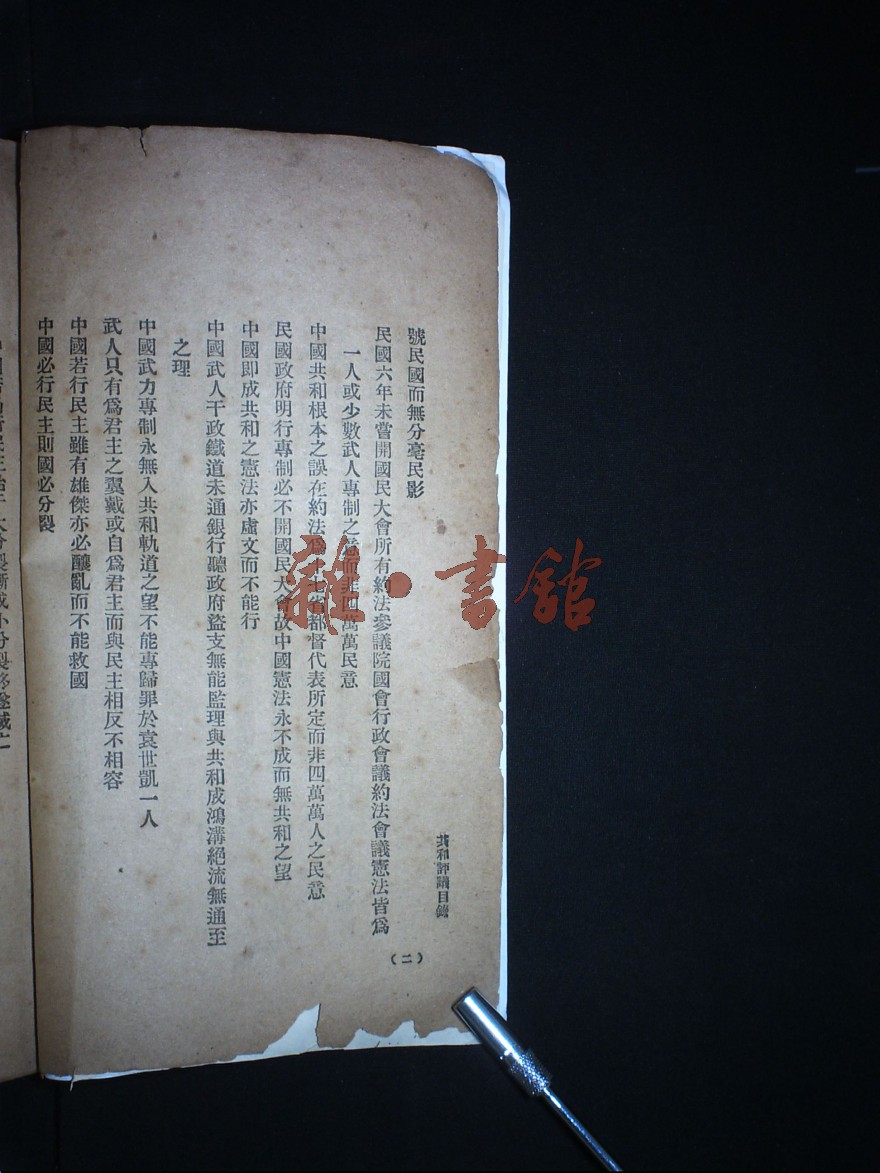 共和評議目錄
（二）
號民國而無分毫民影
民國六年未嘗開國民大會所有約法參議院國會行政會議約法會議憲法皆爲
一人或少數武人專制之意而非四萬萬民意
中國共和根本之誤在約法爲十七省都督代表所定而非四萬萬人之民意
民國政府明行專制必不開國民大會故中國憲法永不成而無共和之望
中國即成共和之憲法亦虛文而不能行
中國武人干政鐵道未通銀行聽政府盜支無能監理與共和成鴻溝絕流無通至
之理
中國武力專制永無入共和軌道之望不能專歸罪於袁世凱一人
武人只有爲君主之翼戴或自爲君主而與民主相反不相容
中國若行民主雖有雄傑亦必釀亂而不能救國
中國必行民主則國必分裂
雜·書館